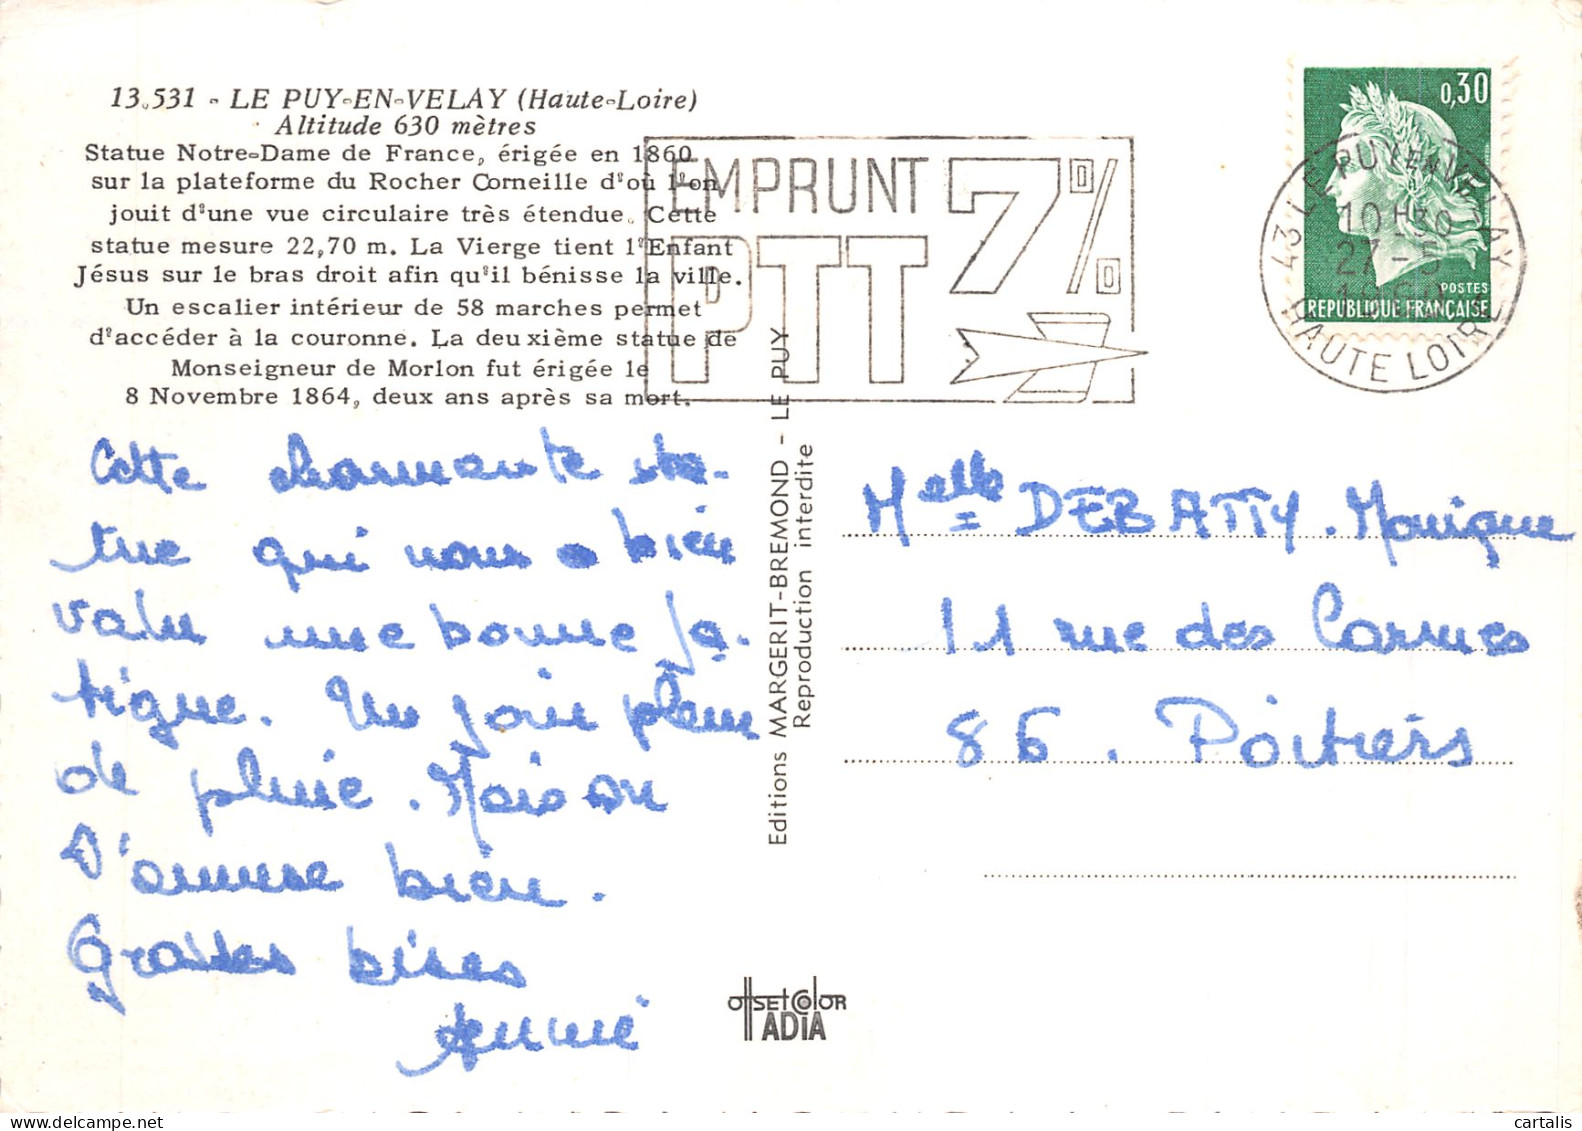 13.531 - LE PUY-EN-VELAY (Haute-Loire)
Altitude 630 mètres
Statue Notre-Dame de France, érigée en 1860
sur la plateforme du Rocher Corneille d'où l'on
jouit d'une vue circulaire très étendue. Cette
statue mesure 22,70 m. La Vierge tient l'Enfant
Jésus sur le bras droit afin qu'il bénisse la ville.
Un escalier intérieur de 58 marches permet
d'accéder à la couronne. La deuxième statue de
Monseigneur de Morlon fut érigée le
8 Novembre 1864, deux ans après sa mort.
EMPRUNT
PTT
7%
0,30
POSTES
REPUBLIQUE FRANÇAISE
43 LE PUY EN VELAY
10 H 30
27 - 5
HAUTE LOIRE
Cette charmante sta-
tue qui nous a bien
valu une bonne fa-
tigue. Un joui plein
de pluie. Mais on
s'amuse bien.
Grosses bises
Annie
Editions MARGERIT-BREMOND - LE PUY
Reproduction interdite
Melle DEBATTY. Monique
11 rue des Carmes
86. Poitiers
OffSEt COlOR
ADIA
cartalis